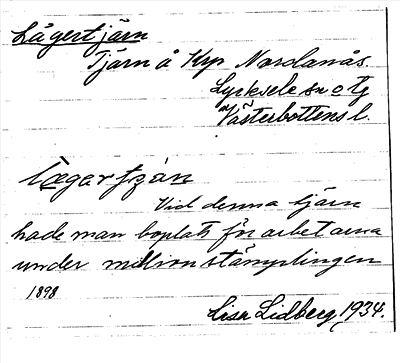 Lägertjärn
Tjärn å Krp Nordanås.
Lycksele sn o tg
Västerbottens l.
Vid denna tjärn
hade man boplats för arbetarna
under millionstämplingen
1898
Lisa Lidberg 1934.